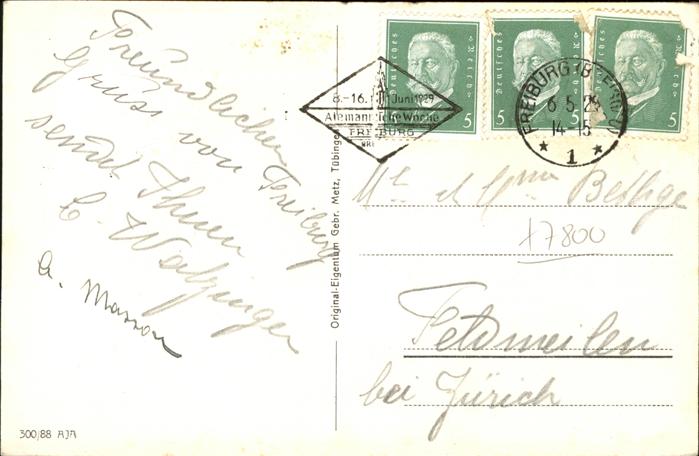 Freundlichen
Gruss von Freiburg
sendet Ihnen
C. Walzinger
A. Masson
300/88 AJA
Original-Eigentum Gebr. Metz, Tübingen
Deutsches Reich
5
Deutsches
5 5
Reich
5
8.-16. Juni 1929
Alemannische Woche
FREIBURG
BRG
FREIBURG (BREISGAU)
6.5.29
14-15
* 1 *
Mr et Mme Bethge
+7800
Feldmeilen
bei Zürich